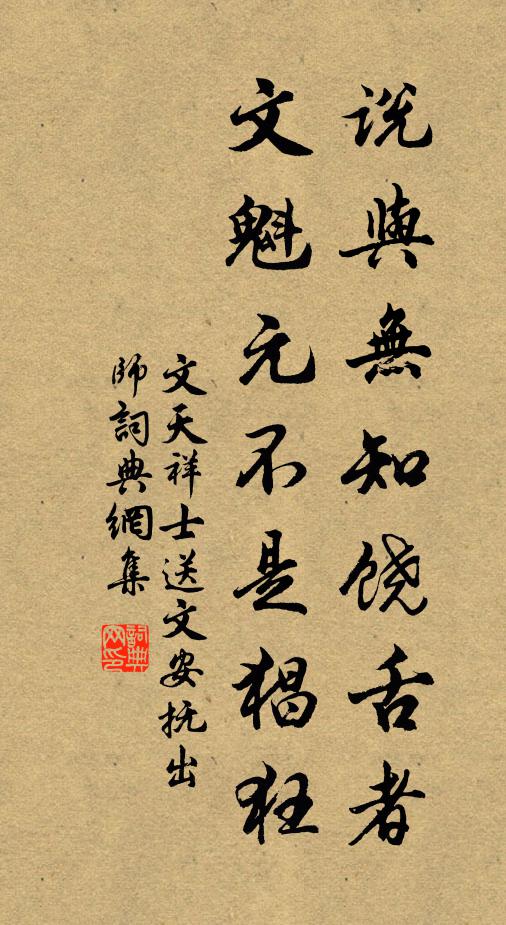 说與無知饶舌者
文魁元不是猖狂
文天祥士送文安抚出
師詞典網集
詞典网印